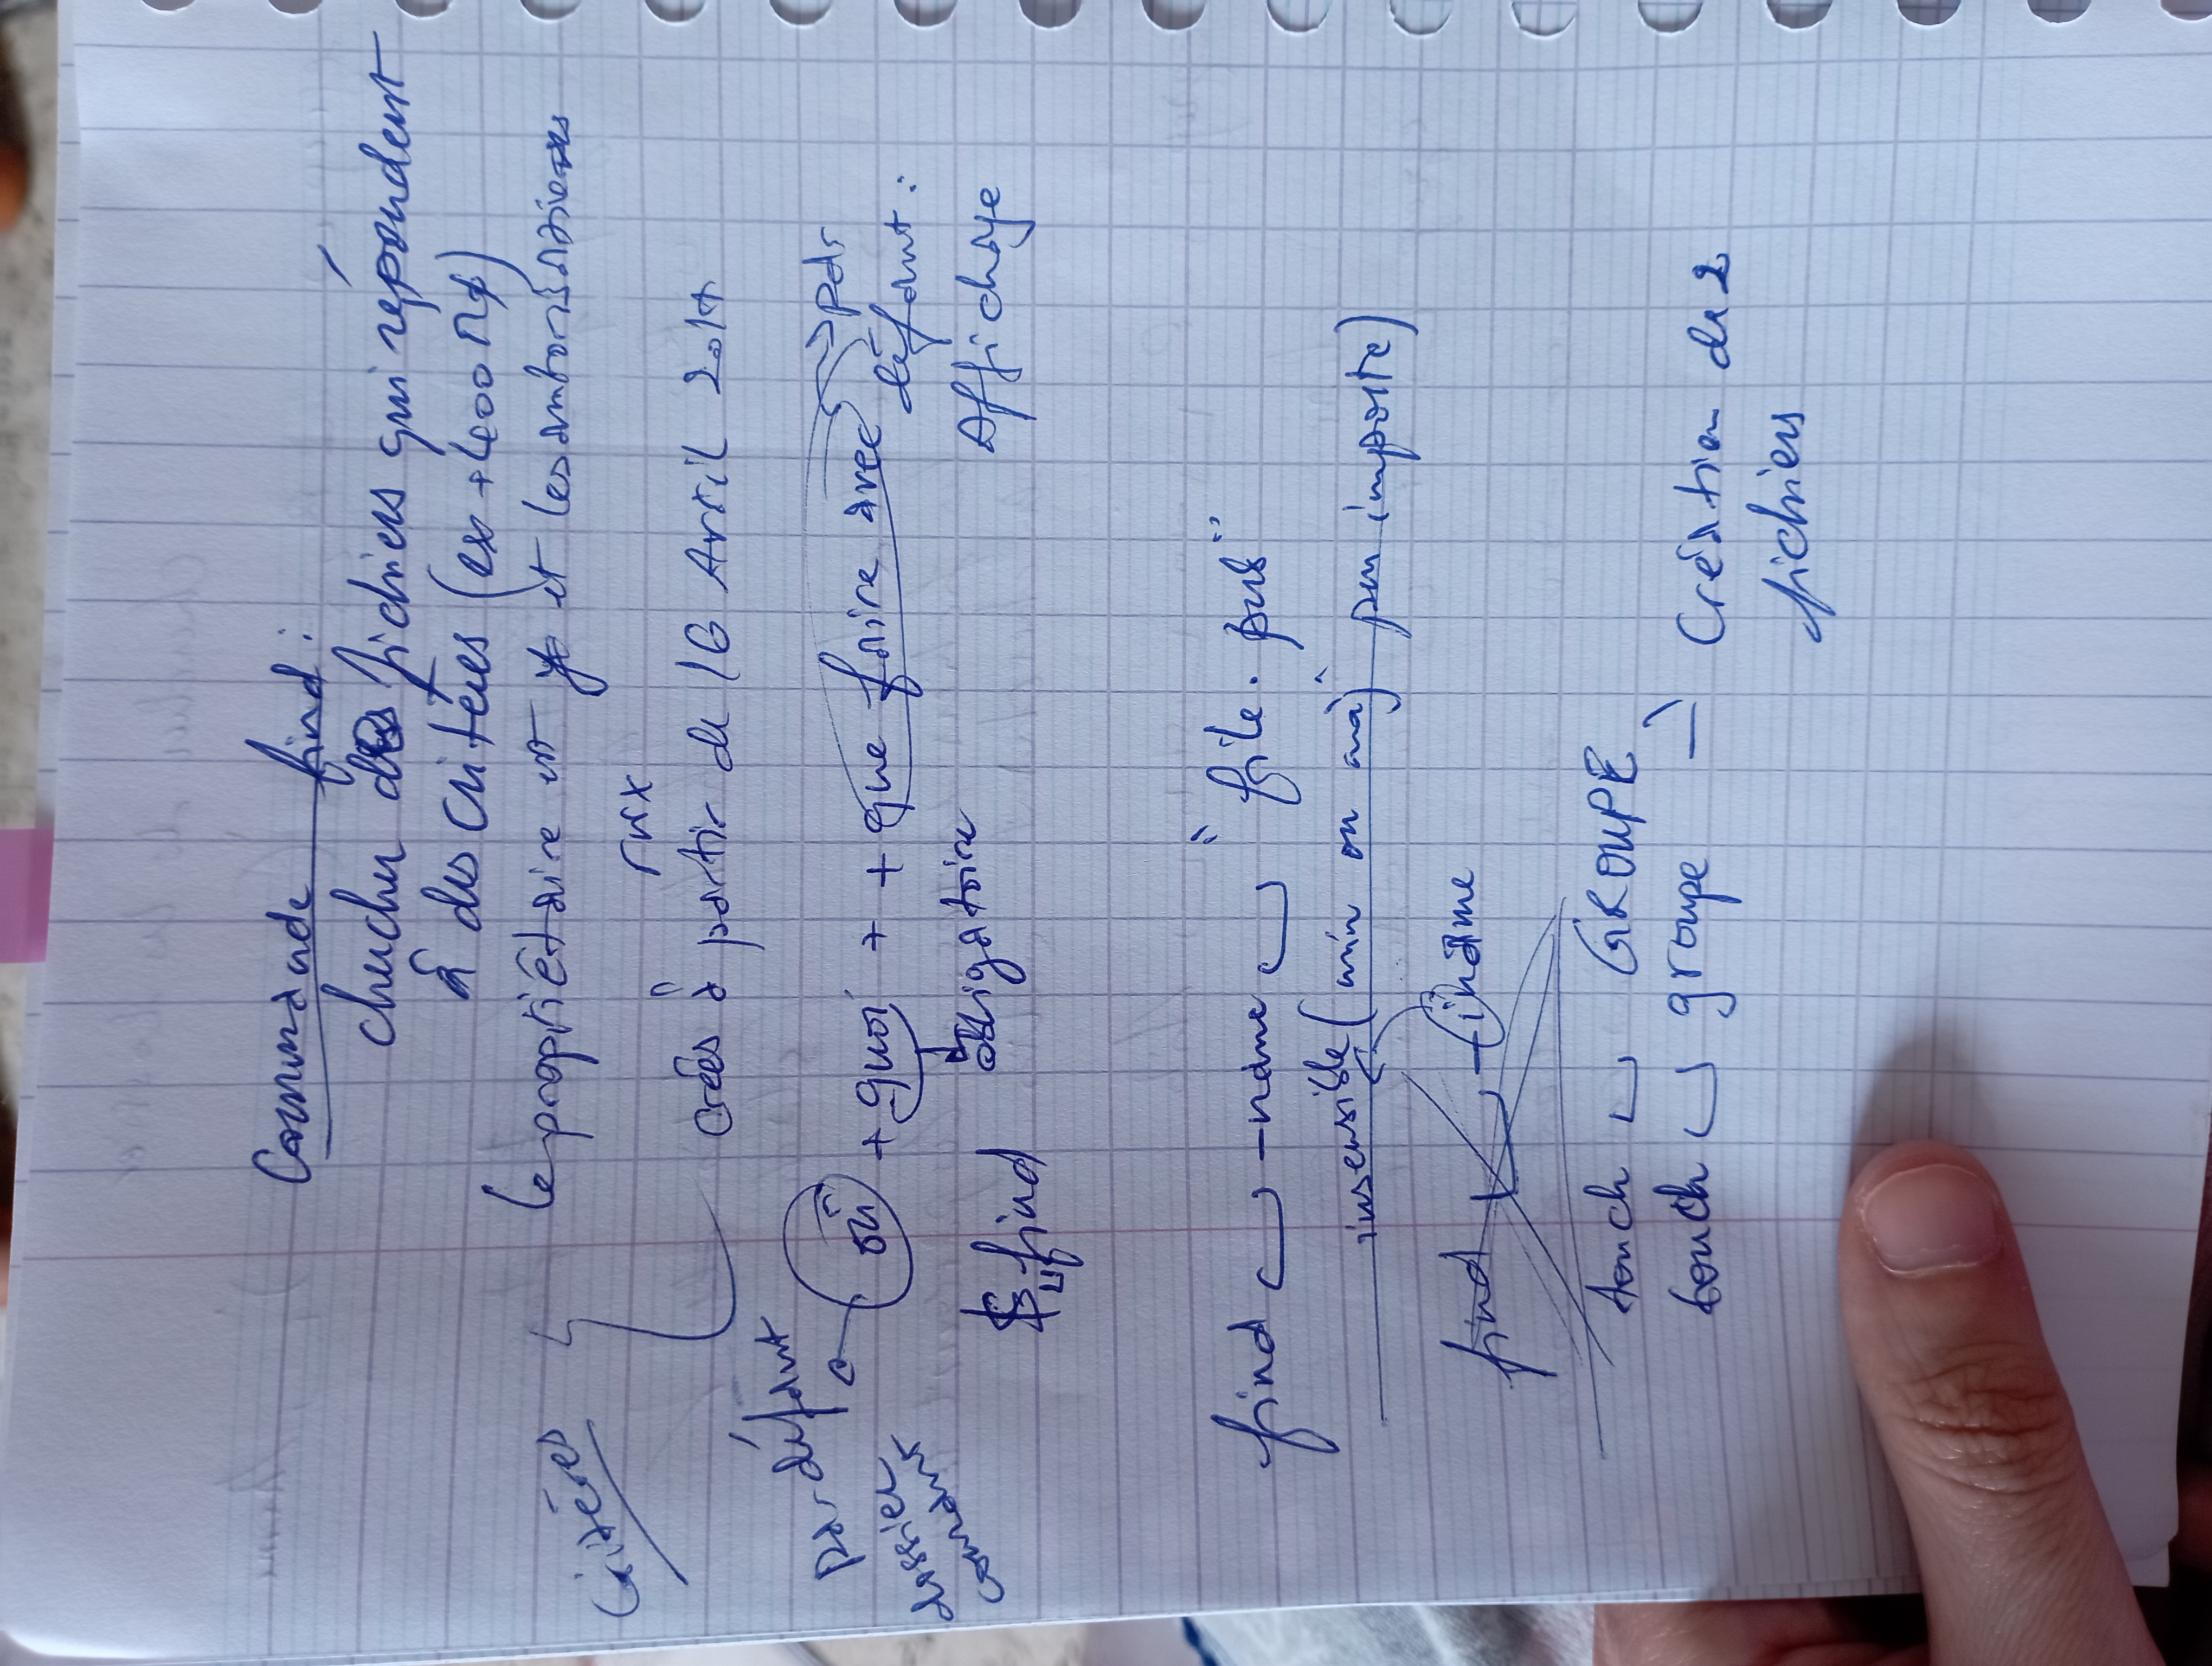 Commande find :
chercher des fichiers qui répondent
à des critères (ex +400 Mo)
Critères
le propriétaire est et les autorisations
rwx
créés à partir de 16 Avril 2017
Par défaut
dossier
courant
où + quoi + + que faire avec
obligatoire
par
défaut :
Affichage
$␣find
find ␣ -name ␣ "file.pub"
insensible (min ou maj peu importe)
find ␣ -iname
touch ␣ GROUPE
touch ␣ groupe
Création de 2
fichiers